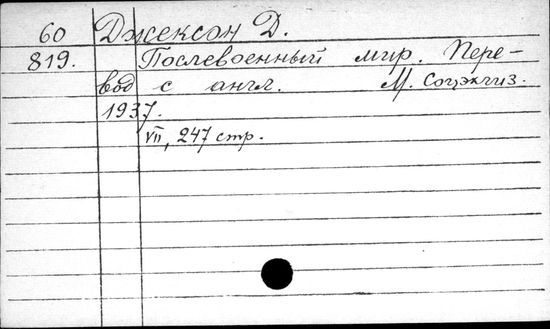 60 Джексон Д.
819. Послевоенный мир. Пере-
вод с англ. М. Соцэкгиз.
1937.
VII, 247 стр.